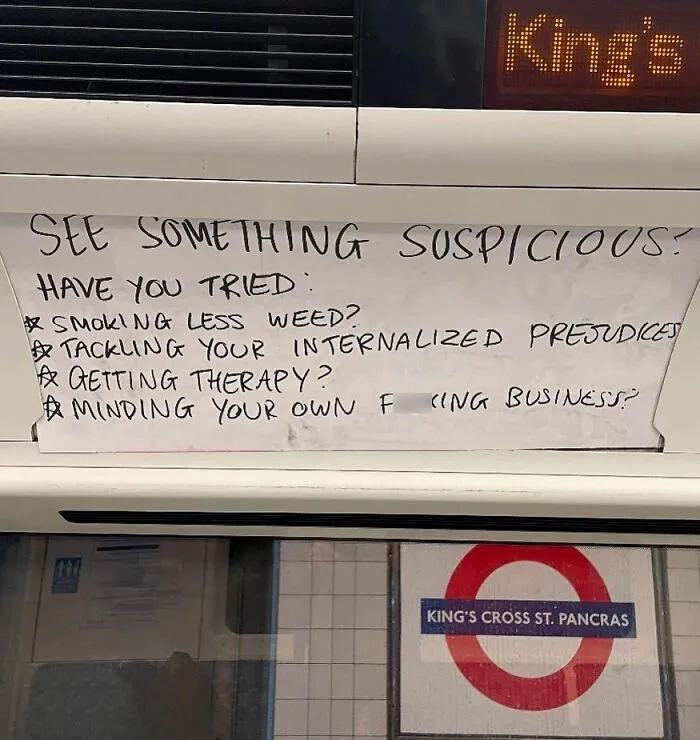 King's
SEE SOMETHING SUSPICIOUS?
HAVE YOU TRIED:
☆ SMOKING LESS WEED?
☆ TACKLING YOUR INTERNALIZED PREJUDICES
☆ GETTING THERAPY?
☆ MINDING YOUR OWN F KING BUSINESS?
KING'S CROSS ST. PANCRAS